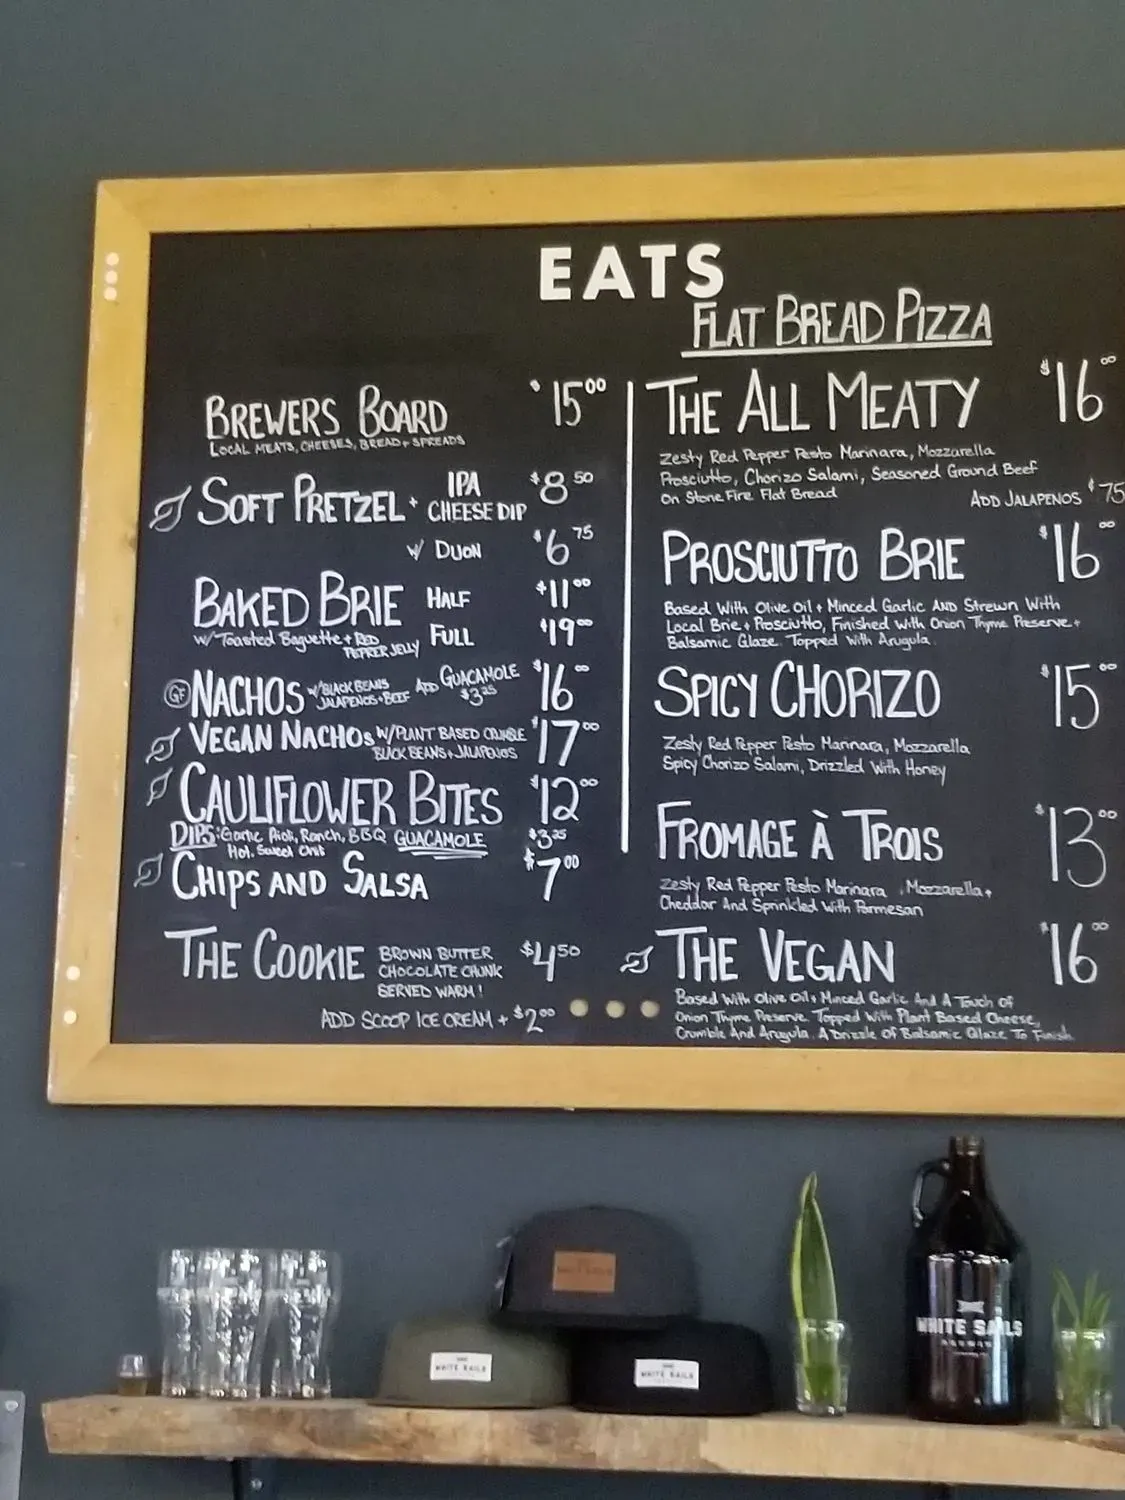 EATS
BREWERS BOARD $15.00
LOCAL MEATS, CHEESES, BREAD + SPREADS
SOFT PRETZEL + IPA CHEESE DIP $8.50
W/ DIJON $6.75
BAKED BRIE HALF $11.00
W/ Toasted Baguette + RED PEPPER JELLY FULL $19.00
GF NACHOS W/ BLACK BEANS JALAPENOS + BEEF ADD GUACAMOLE $3.25 $16.00
VEGAN NACHOS W/ PLANT BASED CRUMBLE BLACK BEANS + JALAPENOS $17.00
CAULIFLOWER BITES $12.00
DIPS: Garlic Aioli, Ranch, BBQ GUACAMOLE $3.25
Hot, Sweet Chili
CHIPS AND SALSA $7.00
THE COOKIE BROWN BUTTER $4.50
CHOCOLATE CHUNK
SERVED WARM!
ADD SCOOP ICE CREAM + $2.00
FLAT BREAD PIZZA
THE ALL MEATY $16.00
Zesty Red Pepper Pesto Marinara, Mozzarella
Prosciutto, Chorizo Salami, Seasoned Ground Beef
On Stone Fire Flat Bread
ADD JALAPENOS $.75
PROSCIUTTO BRIE $16.00
Based With Olive Oil + Minced Garlic AND Strewn With
Local Brie + Prosciutto, Finished With Onion Thyme Preserve +
Balsamic Glaze. Topped With Arugula.
SPICY CHORIZO $15.00
Zesty Red Pepper Pesto Marinara, Mozzarella
Spicy Chorizo Salami, Drizzled With Honey
FROMAGE À TROIS $13.00
Zesty Red Pepper Pesto Marinara, Mozzarella +
Cheddar And Sprinkled With Parmesan
THE VEGAN $16.00
Based With Olive Oil + Minced Garlic And A Touch Of
Onion Thyme Preserve. Topped With Plant Based Cheese,
Crumble And Arugula. A Drizzle Of Balsamic Glaze To Finish.
WHITE SAILS
WHITE SAILS
WHITE SAILS
BREWING